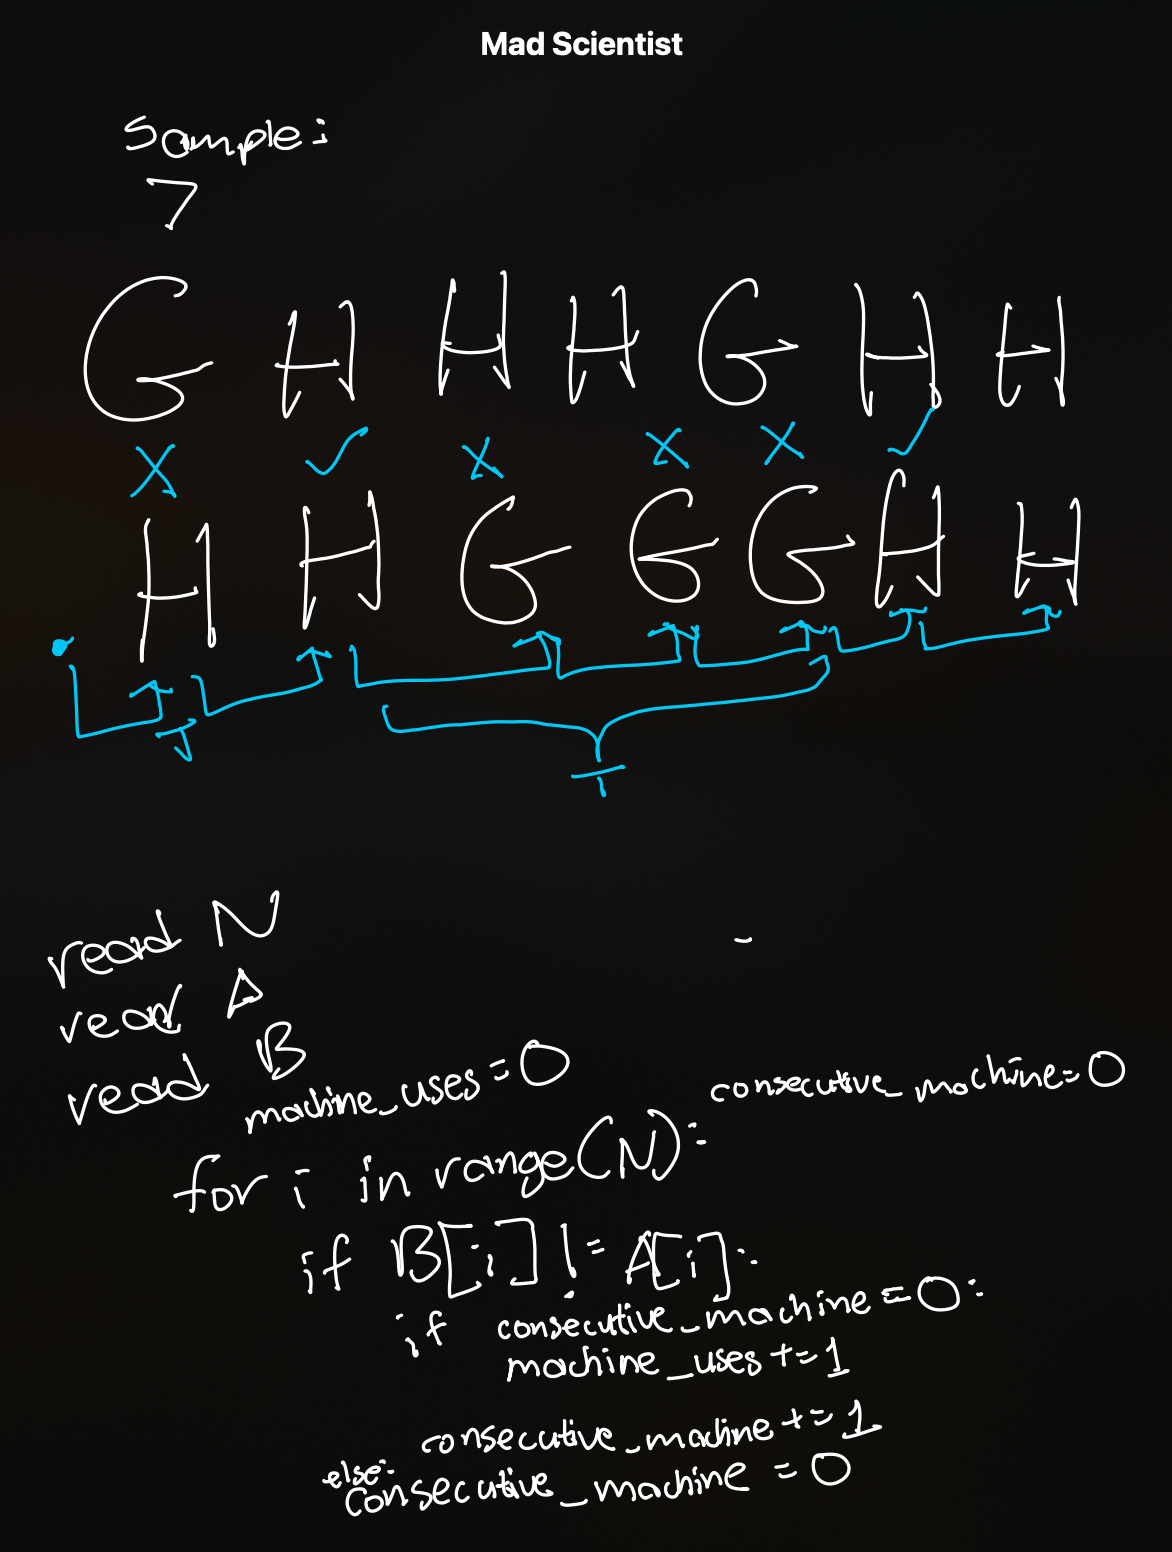 Mad Scientist
Sample:
7
G H H H G H H
X ✓ X X X ✓
H H G G G H H
1
1
read N
read A
read B
machine_uses=0
consecutive_machine=0
for i in range(N):
if B[i] != A[i]:
if consecutive_machine=0:
machine_uses +=1
consecutive_machine +=1
else:
consecutive_machine =0